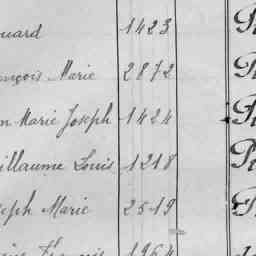 ouard 1423
nçois Marie 2872
n Marie Joseph 1424
illaume Louis 1218
seph Marie 2519
1964